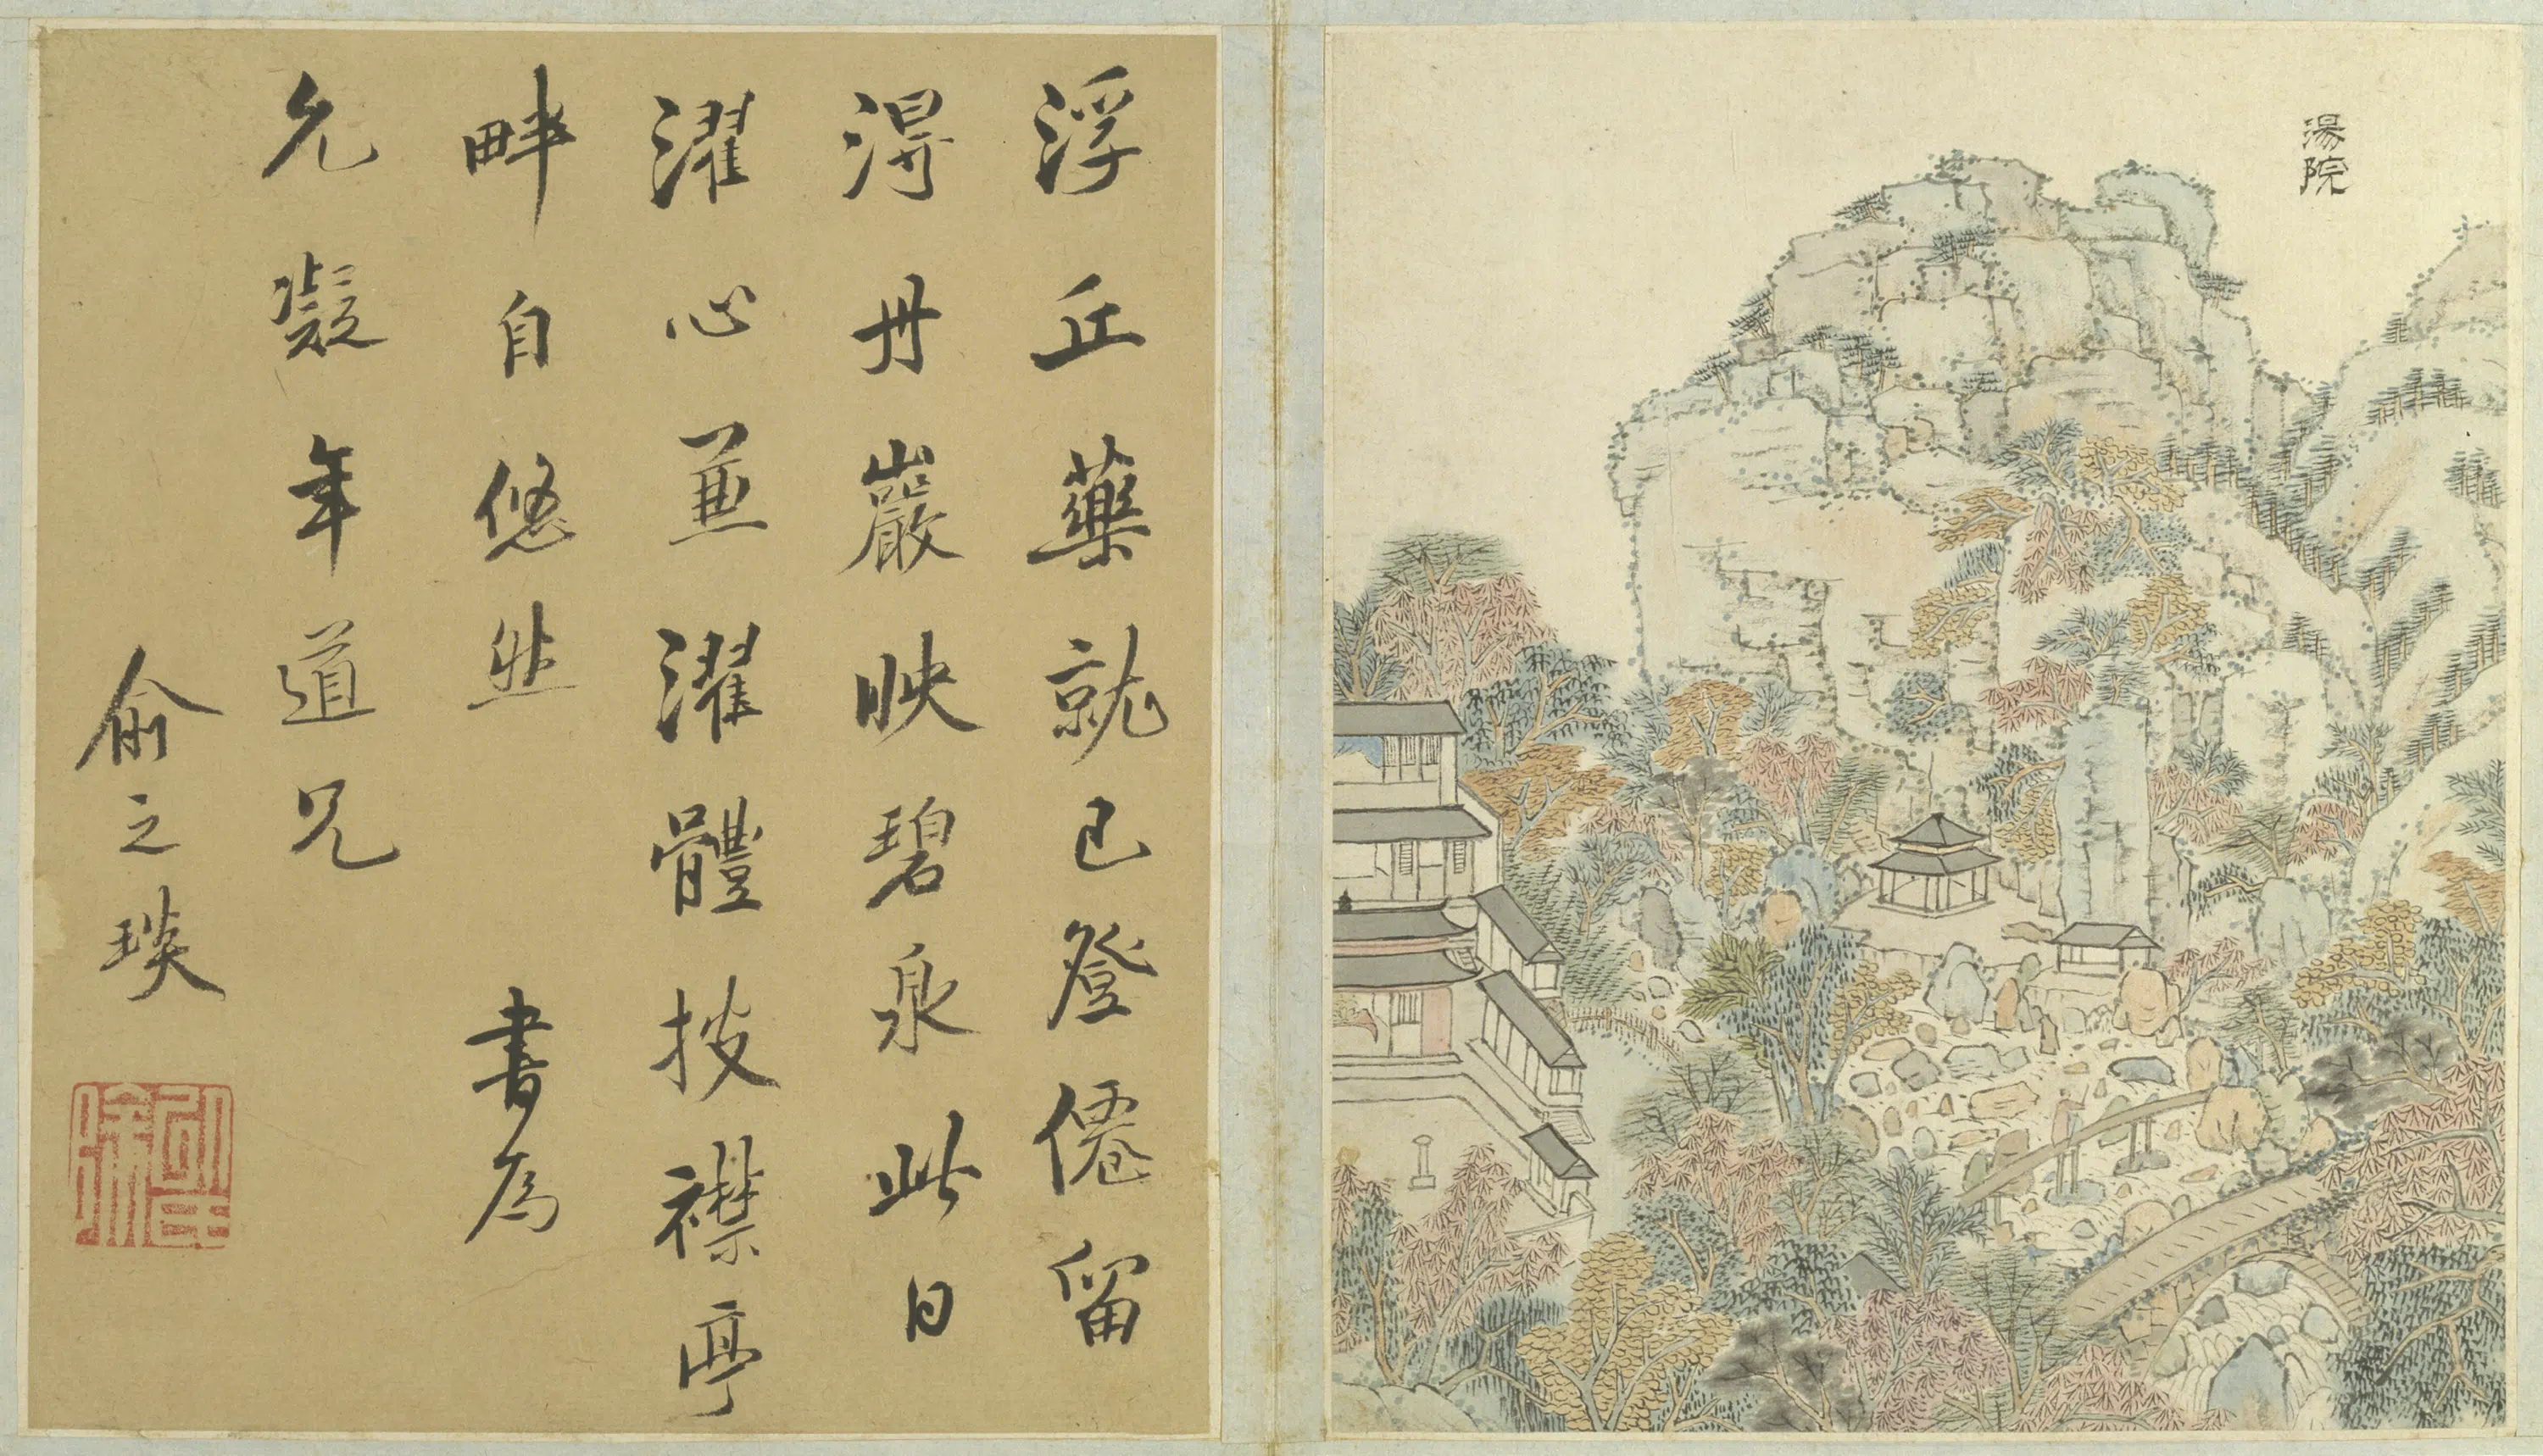 湯院
浮丘藥就已登僊留
淂丹巖映碧泉此日
濯心兼濯體披襟亭
畔自悠然　書爲
允凝年道兄
俞之琰